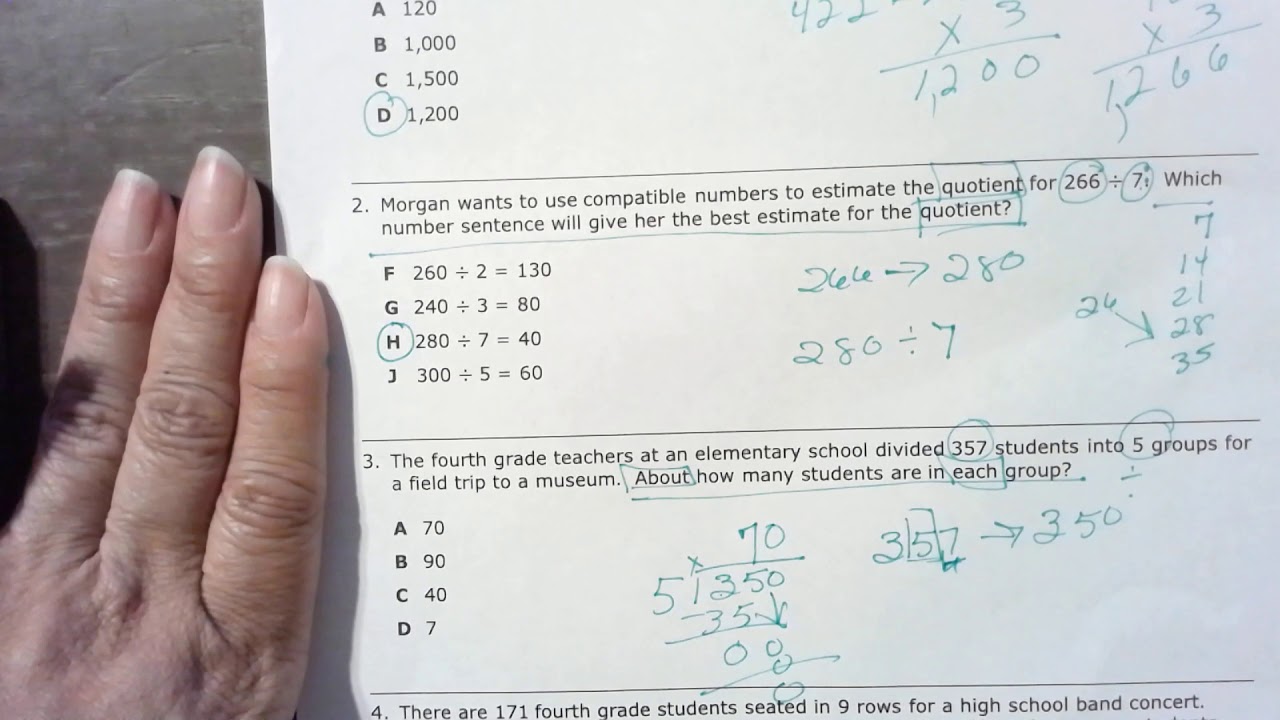 A 120
B 1,000
C 1,500
D 1,200
422
× 3
1,200
× 3
1,266
2. Morgan wants to use compatible numbers to estimate the quotient for 266 ÷ 7? Which
number sentence will give her the best estimate for the quotient?
F 260 ÷ 2 = 130
G 240 ÷ 3 = 80
H 280 ÷ 7 = 40
J 300 ÷ 5 = 60
266 → 280
280 ÷ 7
7
14
21
26
28
35
3. The fourth grade teachers at an elementary school divided 357 students into 5 groups for
a field trip to a museum. About how many students are in each group?
÷
A 70
B 90
C 40
D 7
70
×
5 350
-35
00
0
0
357 → 350
4. There are 171 fourth grade students seated in 9 rows for a high school band concert.